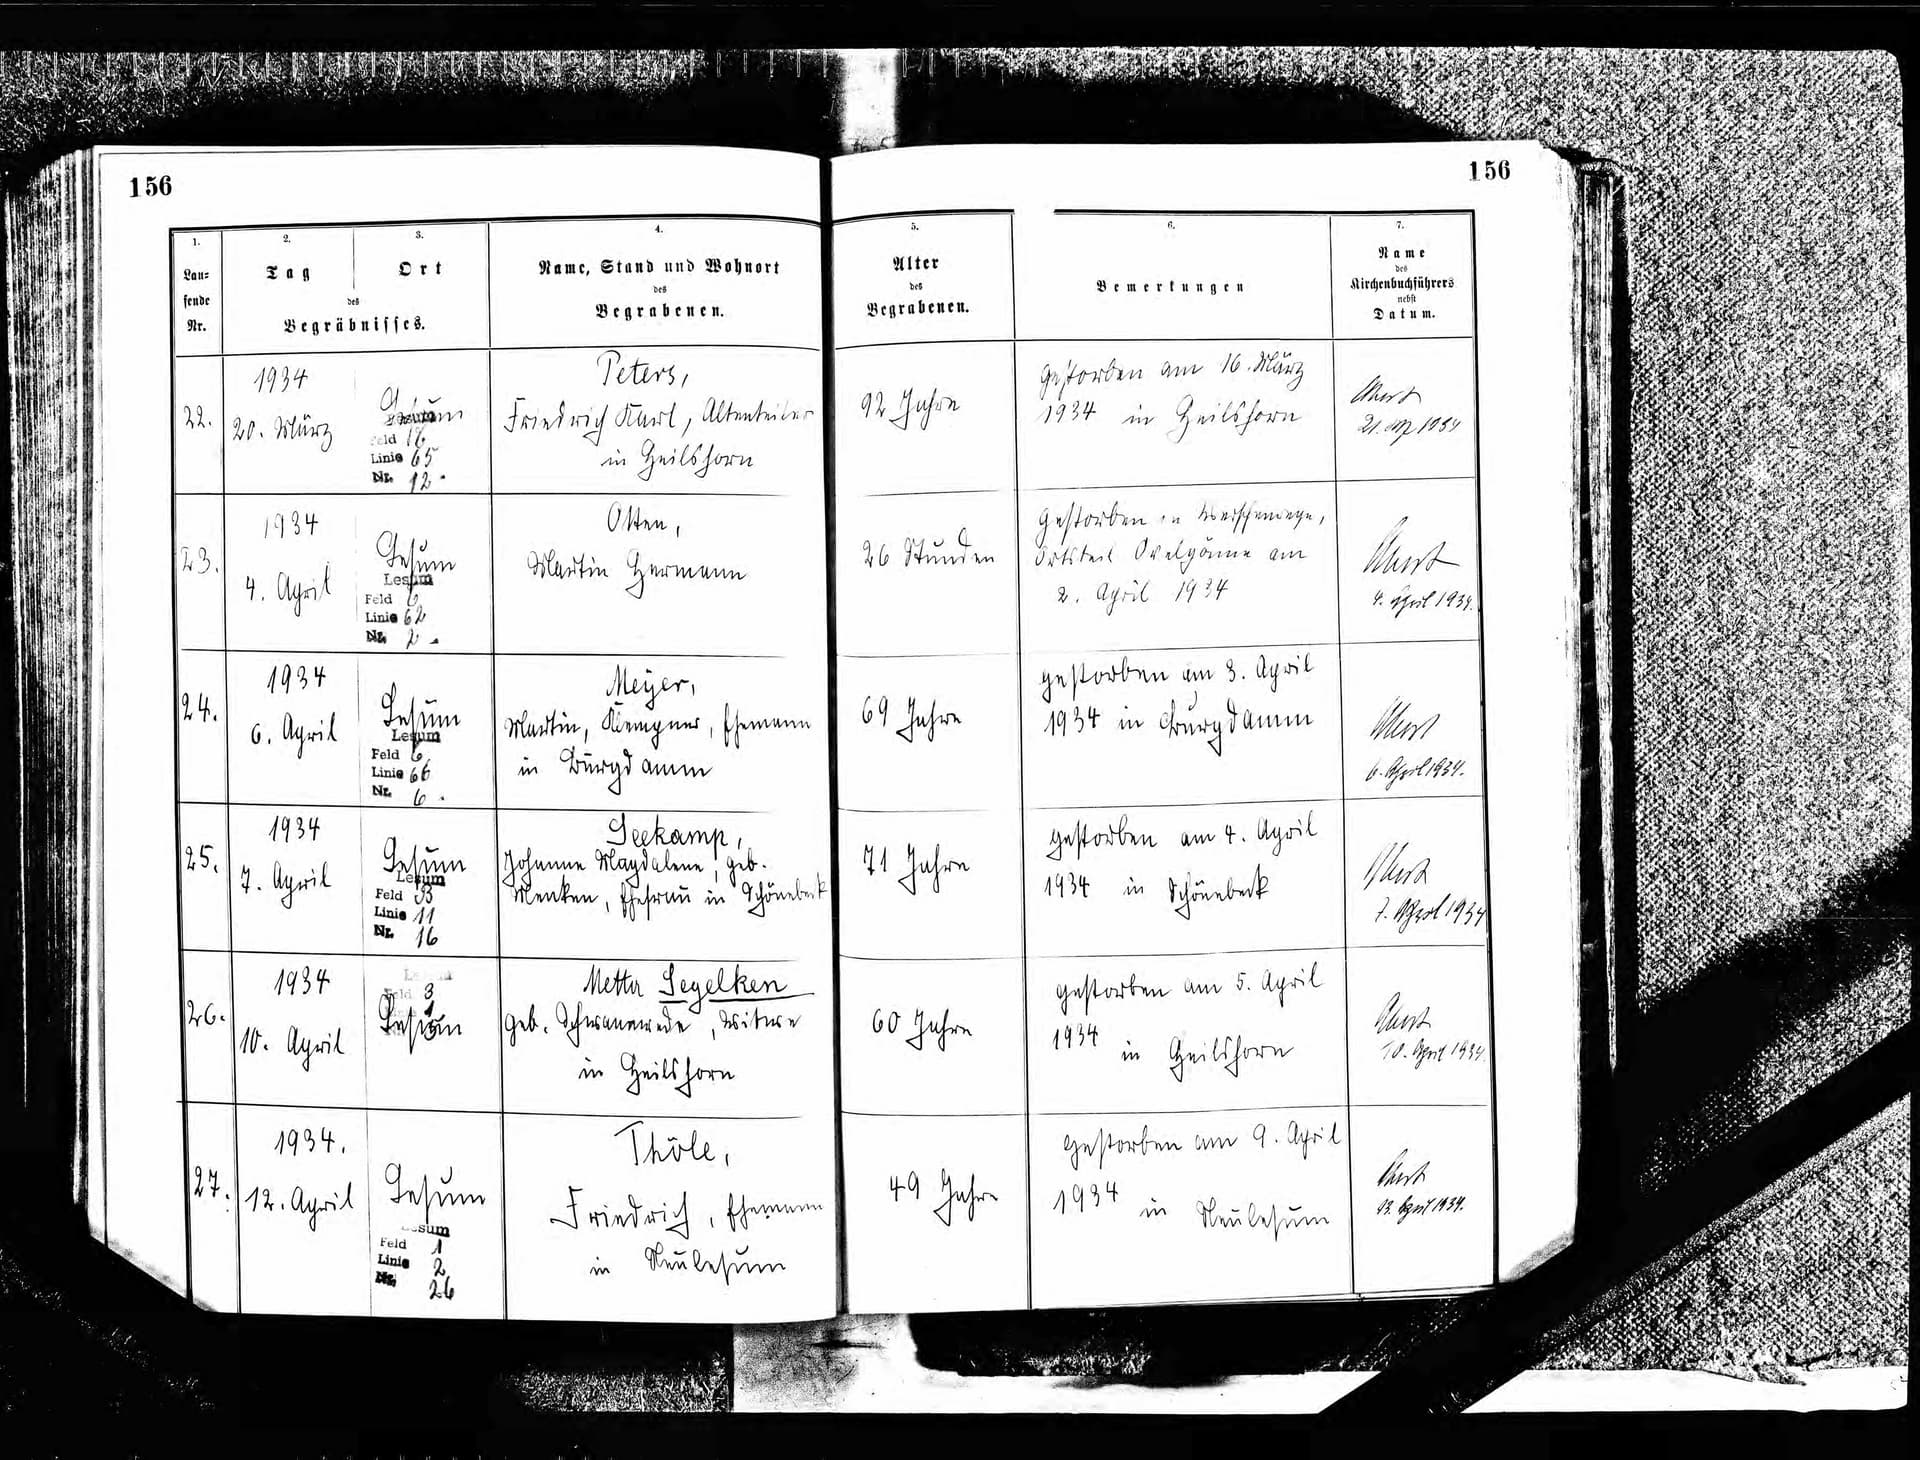 156
156
1.
2.
3.
4.
5.
6.
7.
Lau-
fende
Nr.
Tag
Ort
des
Begräbnisses.
Name, Stand und Wohnort
des
Begrabenen.
Alter
des
Begrabenen.
Bemerkungen
Name
des
Kirchenbuchführers
nebst
Datum.
22.
1934
20. März
Lesum
Lesum
Feld 16
Linie 65
Nr. 12.
Peters,
Friedrich Karl, Altenteiler
in Heilshorn
92 Jahre
gestorben am 16. März
1934 in Heilshorn
21. 1934
23.
1934
4. April
Lesum
Lesum
Feld 6
Linie 62
Nr. 2
Otten,
Martin Hermann
26 Stunden
gestorben in
Ortsteil Ovelgönne am
2. April 1934
4. April 1934.
24.
1934
6. April
Lesum
Lesum
Feld 6
Linie 66
Nr. 6.
Meyer,
Martin, Klempner, Ehemann
in Burgdamm
69 Jahre
gestorben am 3. April
1934 in Burgdamm
6. April 1934.
25.
1934
7. April
Lesum
Lesum
Feld 33
Linie 11
Nr. 16
Seekamp,
Johanne Magdalene, geb.
Menken, Ehefrau in Schönebeck
71 Jahre
gestorben am 4. April
1934 in Schönebeck
7. April 1934
26.
1934
10. April
Lesum
Feld 3
Lesum
Metta Segelken
geb. Schwanewede, Witwe
in Heilshorn
60 Jahre
gestorben am 5. April
1934
in Heilshorn
10. April 1934.
27.
1934.
12. April
Lesum
Lesum
Feld 1
Linie 2
Nr. 26
Thöle,
Friedrich, Ehemann
in Neulesum
49 Jahre
gestorben am 9. April
1934
in Neulesum
13. April 1934.